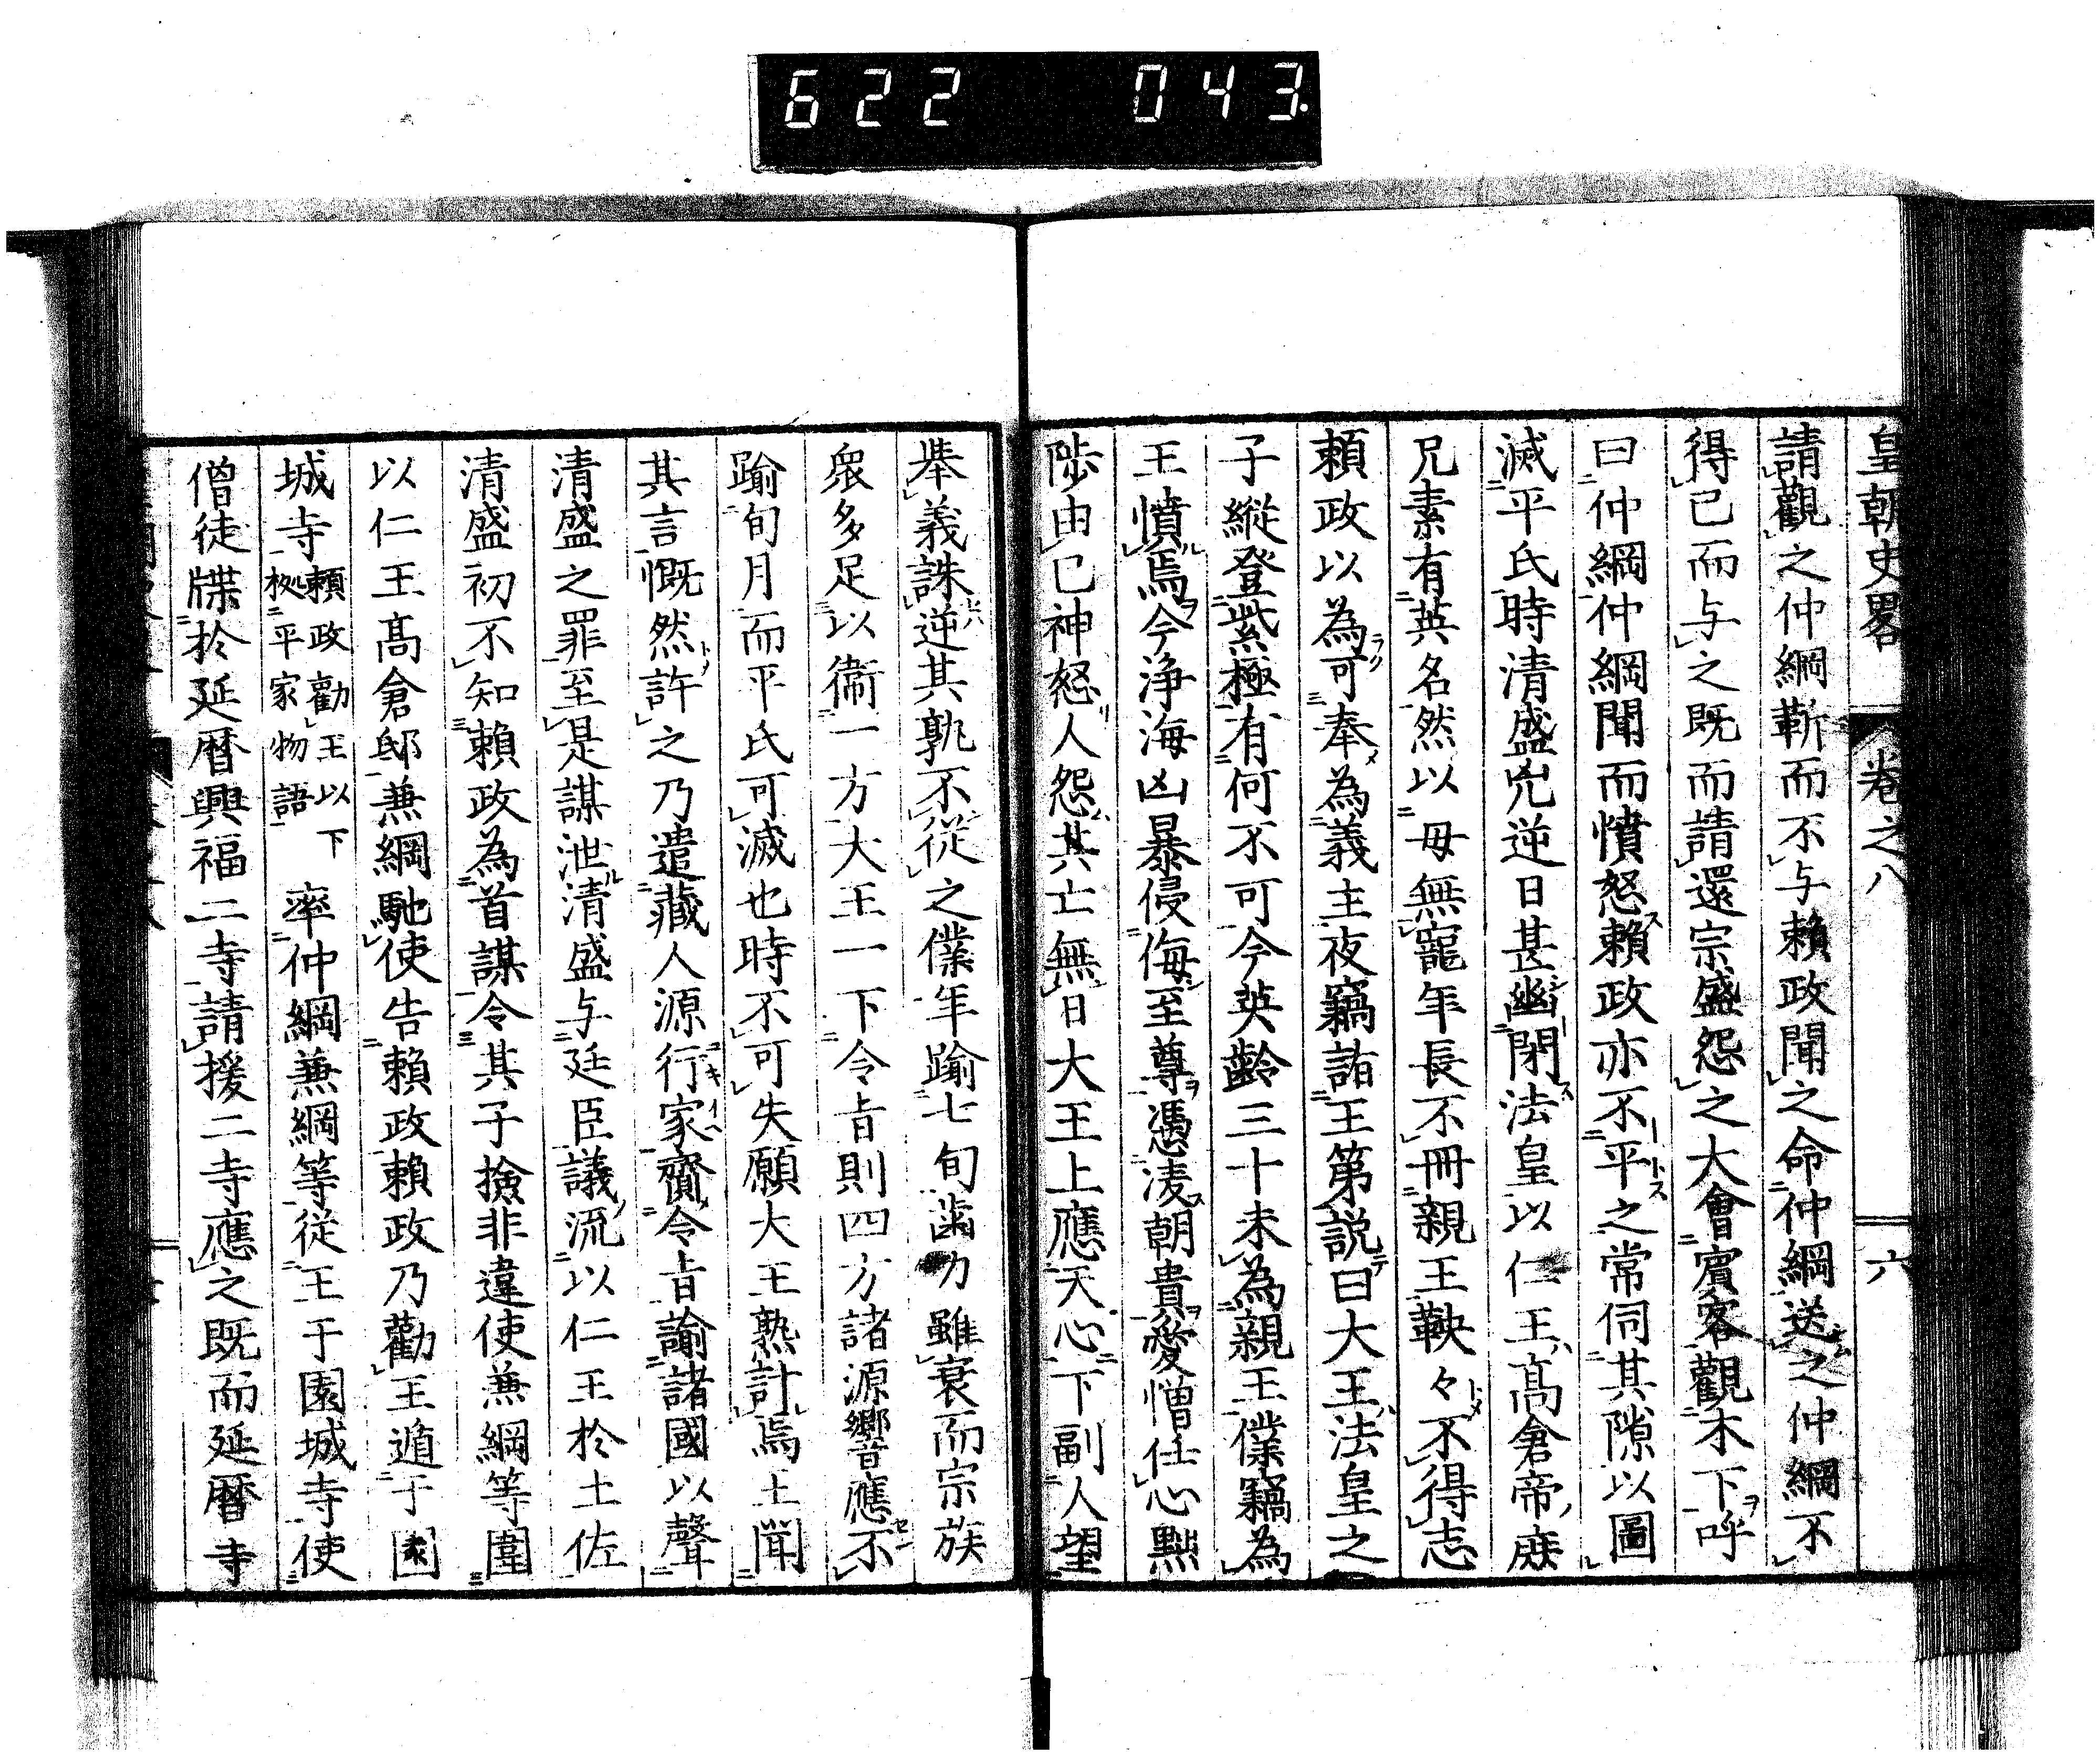 622 043.
皇朝史畧 卷之八 六
請觀之仲綱靳而不与賴政聞之命仲綱送之仲綱不
得已而与之既而請還宗盛怨之大會賓客觀木下呼
曰仲綱仲綱聞而憤怒賴政亦不平之常伺其隙以圖
滅平氏時清盛兇逆日甚幽閉法皇以仁王高倉帝庶
兄素有英名然以母無寵年長不冊親王鞅々不得志
賴政以為可奉為義主夜竊詣王第説曰大王法皇之
子縱登紫極有何不可今英齡三十未為親王僕竊為
王憤焉今浄海凶暴侵侮至尊憑凌朝貴愛憎任心黜
陟由己神怒人怨其亡無日大王上應天心下副人望
舉義誅逆其孰不從之僕年踰七旬齒力雖衰而宗族
衆多足以衞一方大王一下令㫖則四方諸源響應不
踰旬月而平氏可滅也時不可失願大王熟計焉王聞
其言慨然許之乃遣藏人源行家齎令㫖諭諸國以聲
清盛之罪至是謀泄清盛与廷臣議流以仁王於土佐
清盛初不知賴政為首謀令其子撿非違使兼綱等圍
以仁王高倉邸兼綱馳使告賴政賴政乃勸王遁于園
城寺賴政勸王以下
㧞平家物語率仲綱兼綱等從王于園城寺使
僧徒牒於延曆興福二寺請援二寺應之既而延曆寺